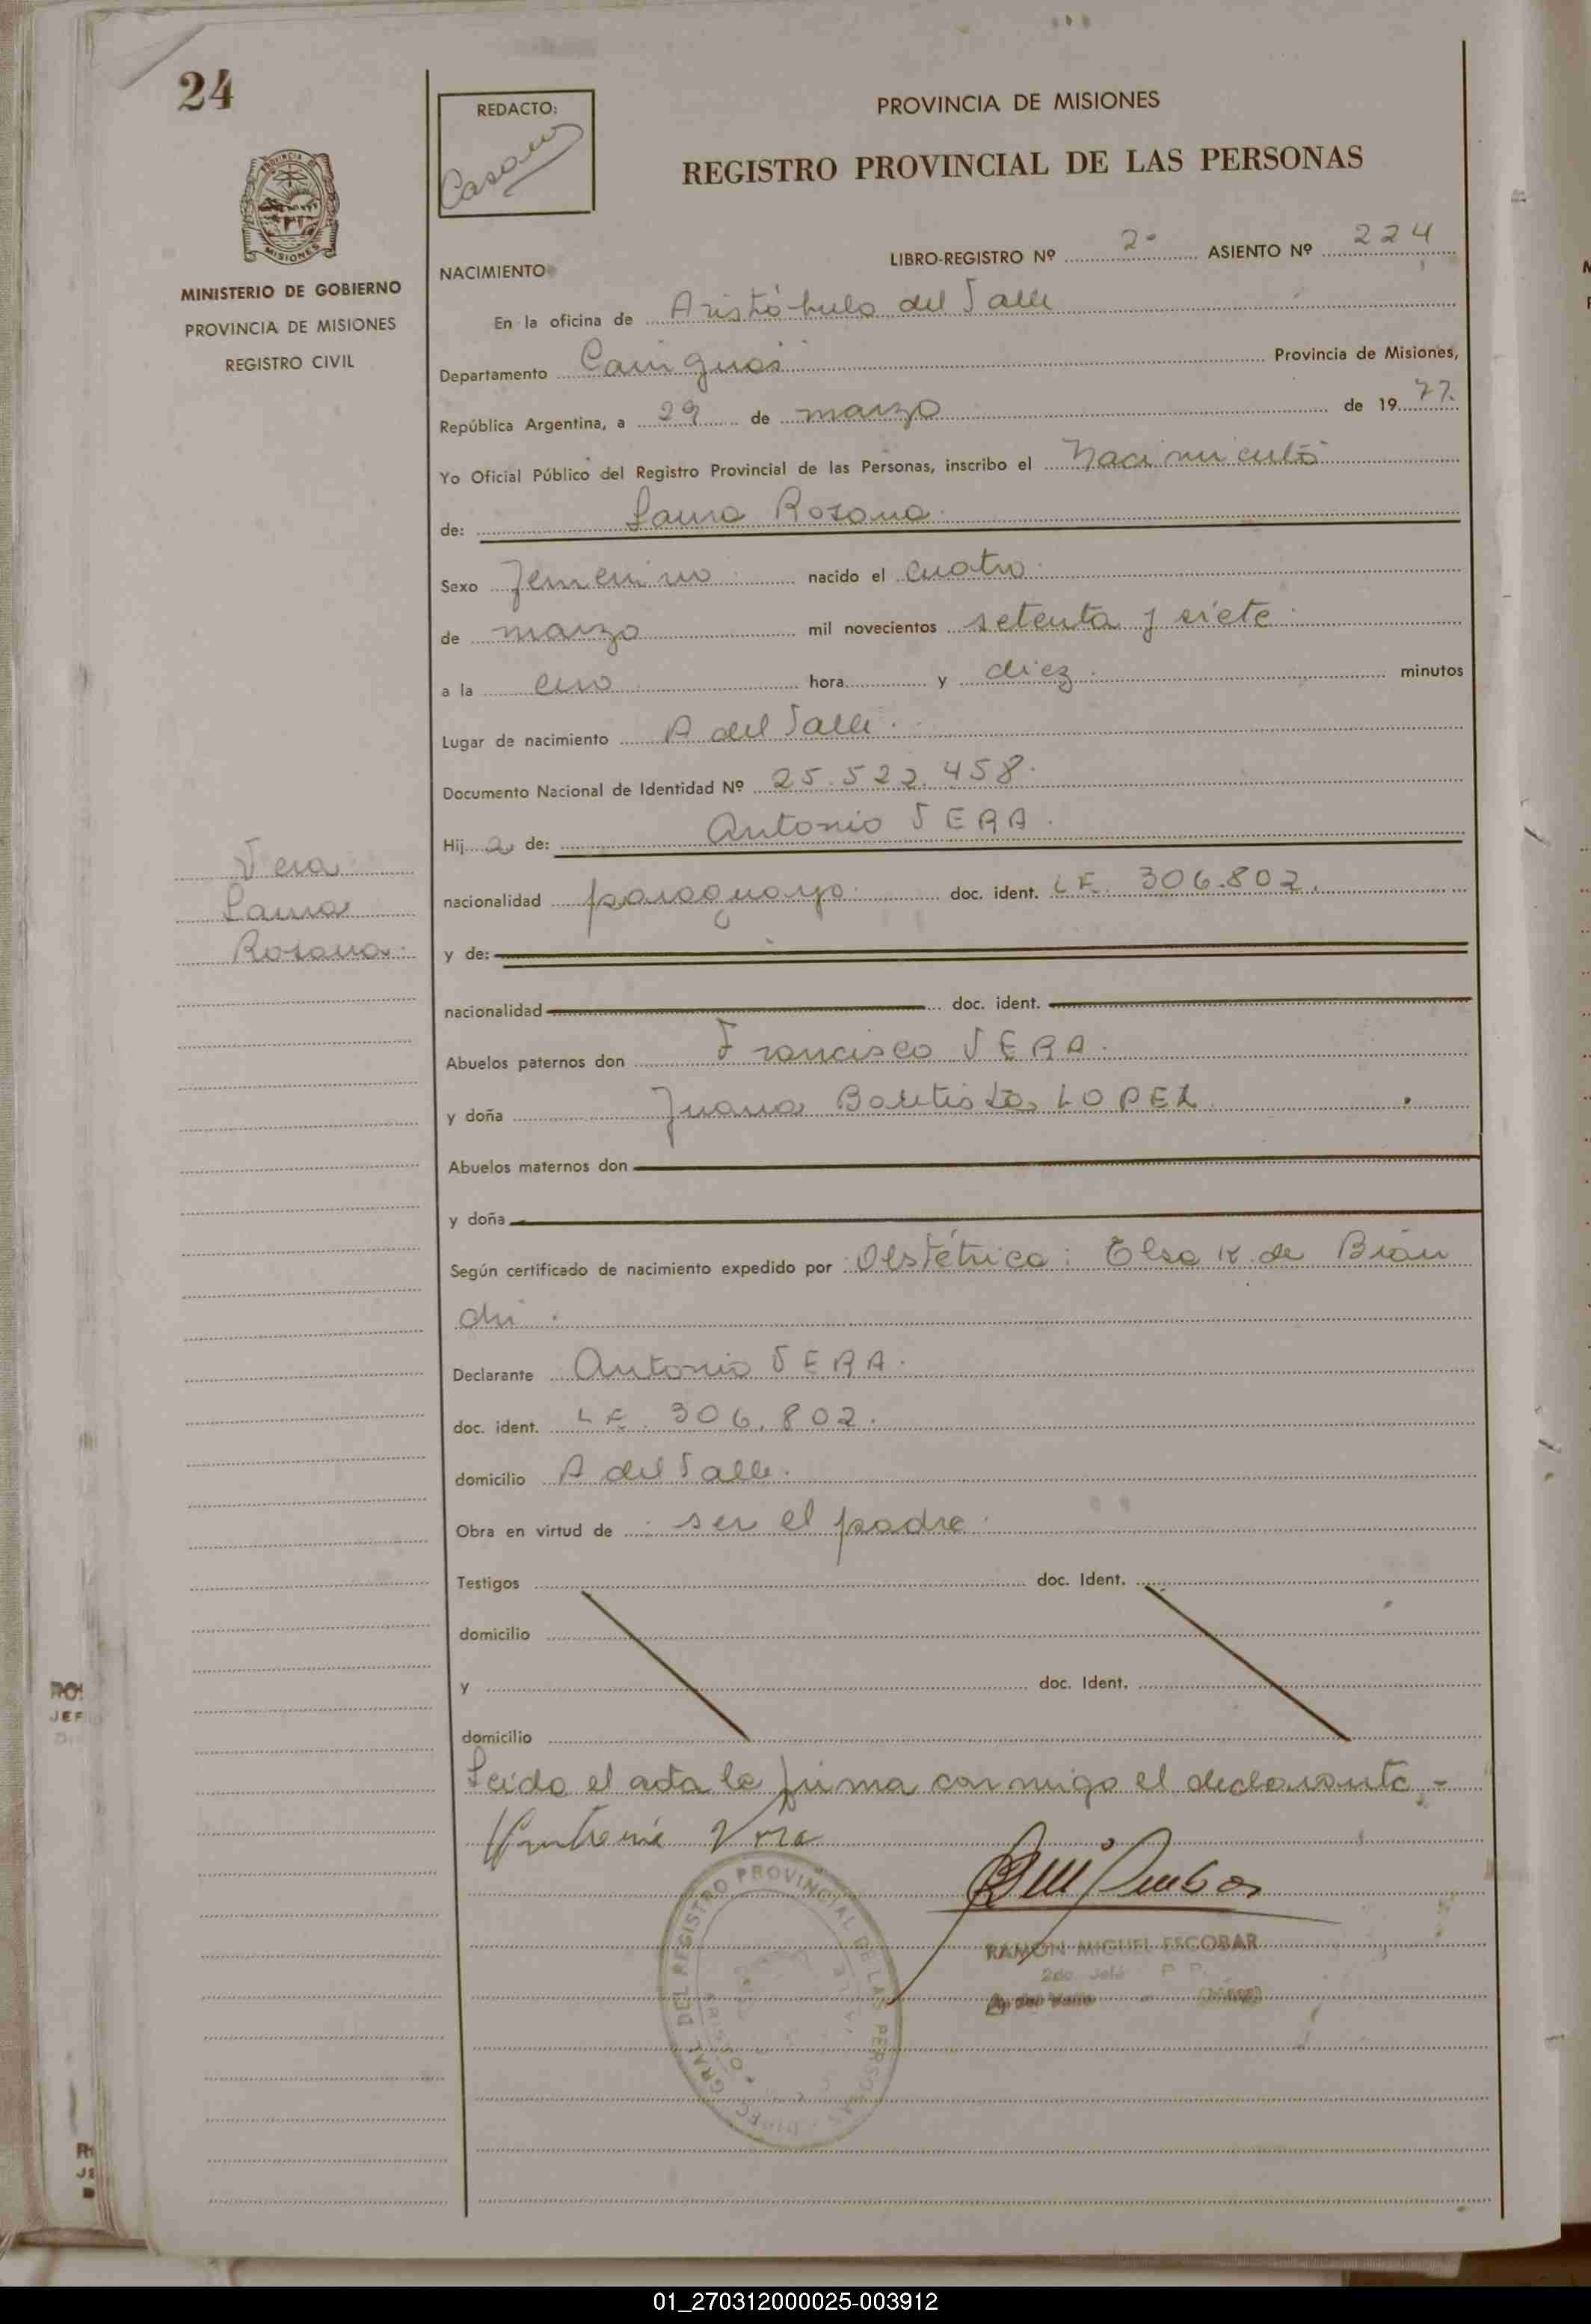 24
MINISTERIO DE GOBIERNO
PROVINCIA DE MISIONES
REGISTRO CIVIL
REDACTO:
PROVINCIA DE MISIONES
REGISTRO PROVINCIAL DE LAS PERSONAS
LIBRO-REGISTRO Nº 2º ASIENTO Nº 224
NACIMIENTO
En la oficina de Aristóbulo del Valle
Departamento Cainguás Provincia de Misiones,
República Argentina, a 29 de marzo de 1977.
Yo Oficial Público del Registro Provincial de las Personas, inscribo el Nacimiento
de: Laura Rosana.
Sexo femenino nacido el cuatro
de marzo mil novecientos setenta y siete
a la cero hora y diez minutos
Lugar de nacimiento A del Valle.
Documento Nacional de Identidad Nº 25.522.458.
Hija de: Antonio VERA.
Vera
Laura
Rosana.
nacionalidad paraguayo. doc. ident. L.E. 306.802.
y de:
nacionalidad doc. ident.
Abuelos paternos don Francisco VERA.
y doña Juana Bautista LOPEZ
Abuelos maternos don
y doña
Según certificado de nacimiento expedido por Obstétrica: Elsa K. de Bian
chi.
Declarante Antonio VERA.
doc. ident. L.E. 306.802.
domicilio A del Valle.
Obra en virtud de ser el padre
Testigos doc. Ident.
domicilio
y doc. Ident.
domicilio
Leída el acta la firma conmigo el declarante.-
Vera
RAMON MIGUEL ESCOBAR
2do Jefe
REGISTRO PROVINCIAL DE LAS PERSONAS
GRAL DEL
01_270312000025-003912